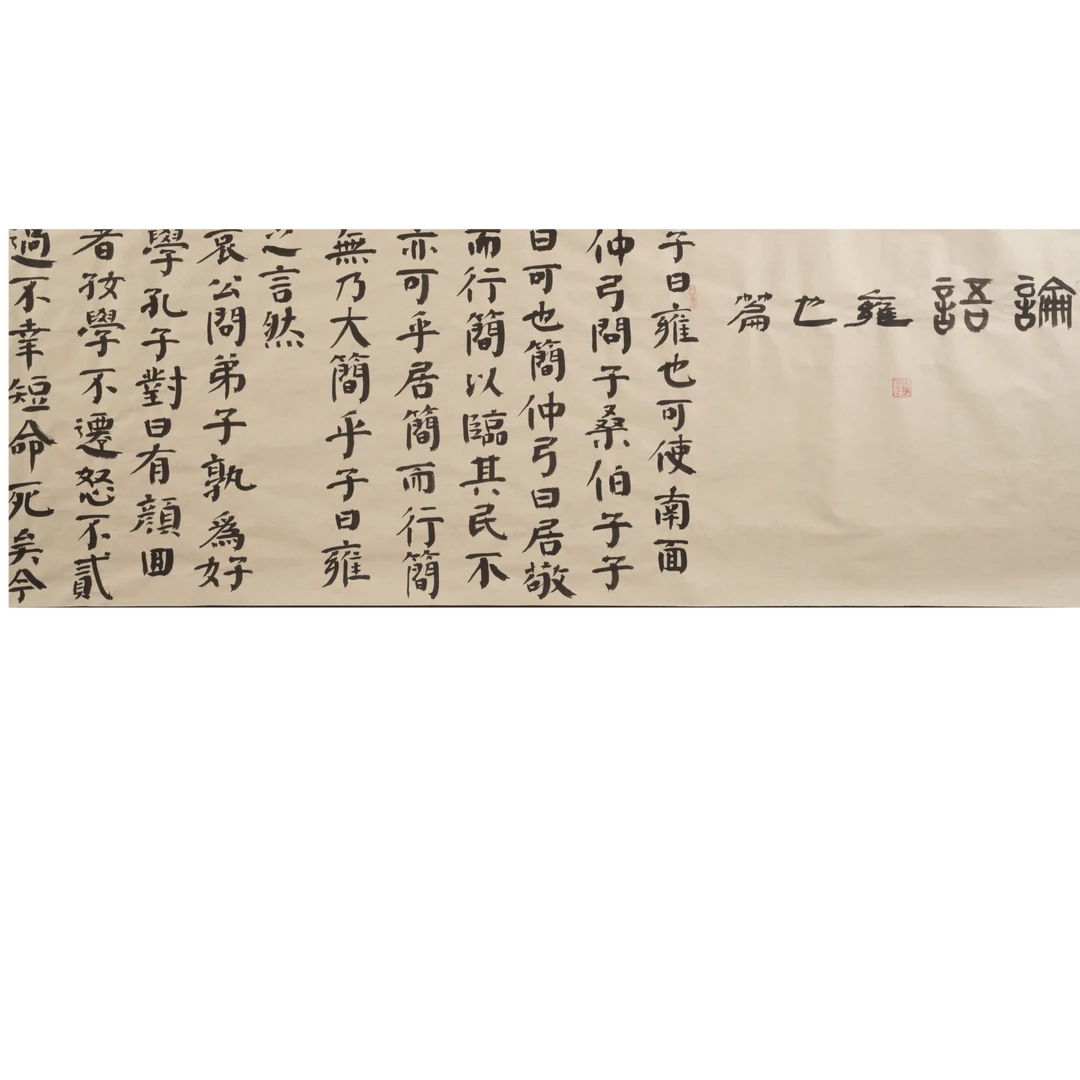 論語雍也篇
子曰雍也可使南面
仲弓問子桑伯子子
曰可也簡仲弓曰居敬
而行簡以臨其民不
亦可乎居簡而行簡
無乃大簡乎子曰雍
之言然
哀公問弟子孰爲好
學孔子對曰有顔回
者好學不遷怒不貳
過不幸短命死矣今